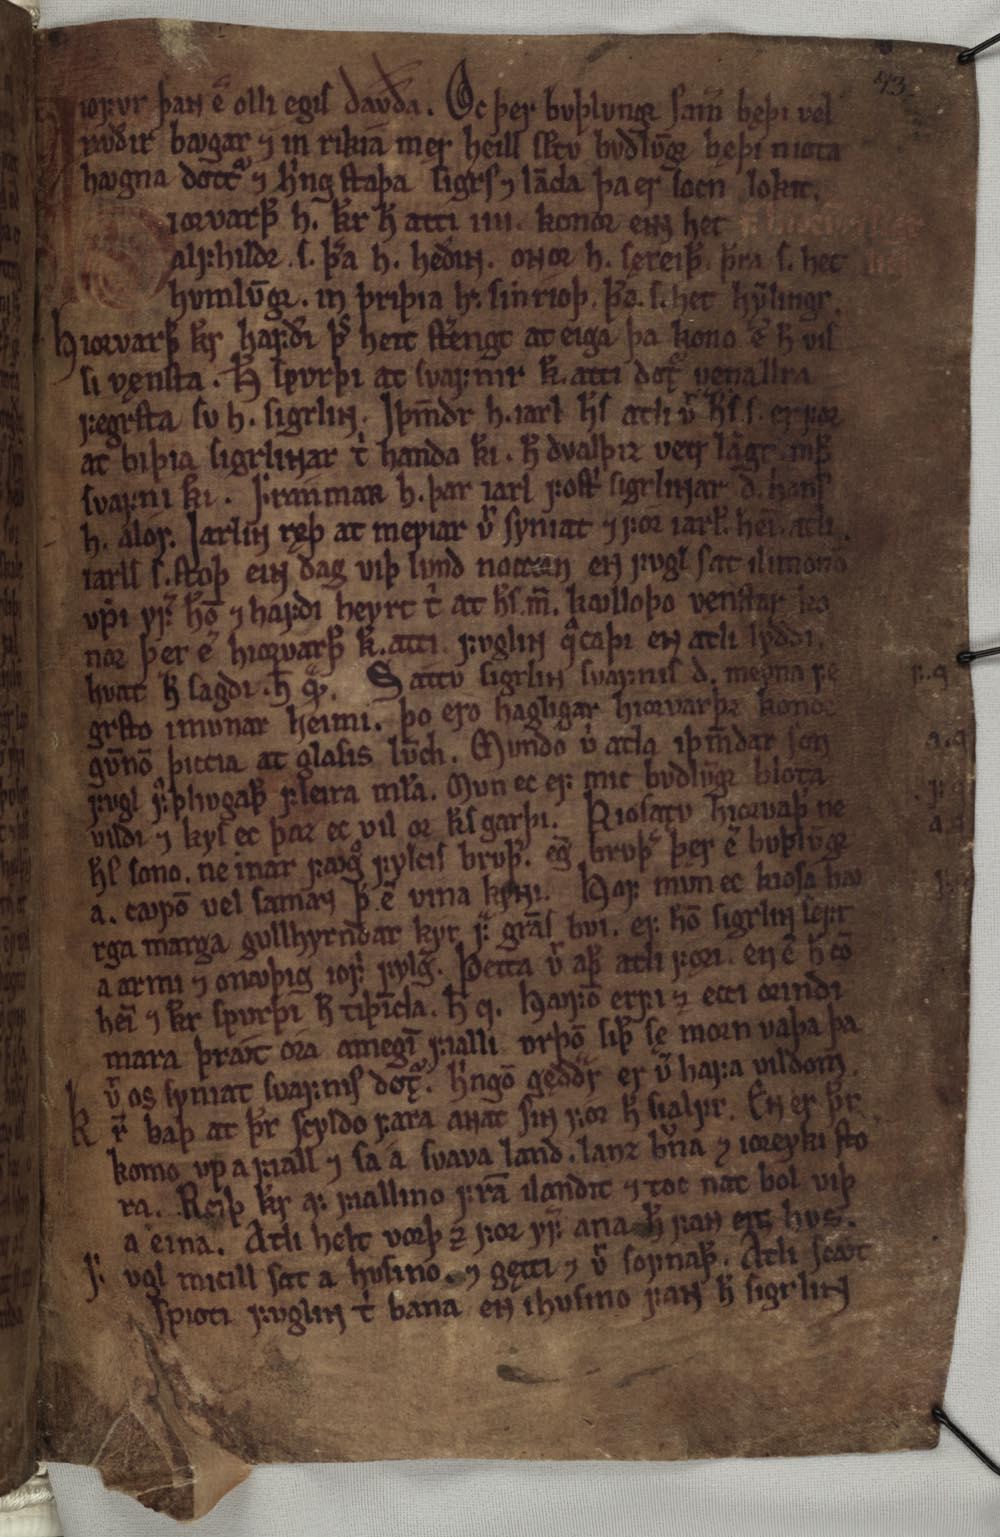 43
iofvr þaɴ e᷎ olli egiſ davða. Oc þer bvþlvngr ſam̅ bęþi vel
rꜹðir bꜹgar ⁊ in rikia mę́r heill ſc̅tv bvðlv̅gr bęþi niota
hꜹgna dott᷎ ⁊ h᷎ngſtaþa ſigrſ ⁊ la̅da þa er ſocn lokit.
iorvarþ̅ h. k̅r h̅ atti iiii. konor eiɴ het
alfhildr .ſ. þ᷎a h. heðiɴ. oɴor h. ſęreiþ. þ᷎ra ſ. het
hvmlv̅gr. in þriþia h. ſinrioþ. þ᷎a. ſ. het hy̅lingr.
Hiorvarþ̅ k̅r hafði þ̅ſ heit ſtrengt at eiga þa kono e᷎ h̅ viſ
ſi vęnſta. H̅ ſpvrþi at ſvafnir k̅. atti dot᷎ vena allra
fegrſta ſv h. ſigrliɴ. Iþm̅dr h. iarl h̅ſ atli v᷎ h̅ſ ſ. er for
at biþia ſigrliɴar t᷎ handa k̅i. h̅ dvalþiz vetr la̅gt mþ̅
ſvafni k̅i. Franmar h. þar iarl foſt᷎ ſigrliɴar d. hanſ
h. álof. Iarliɴ ręþ at meyiar v᷎ ſyniat ⁊ for iarl. hei̅. atli
iarlſ ſ. ſtoþ eiɴ dag viþ lvnd noccꜹrɴ en fvgl ſat i limono̅
vppi yf᷎ ho̅ ⁊ hafði heyrt t᷎ at h̅ſ m̅. kꜹlloþo venſtar ko
nor þer e᷎ hiorvarþ̅ k̅. atti. fvgliɴ q᷎caþi eɴ atli lyddi.
hvat h̅ ſagði. h̅ q̅. Sattv ſigrliɴ ſvafniſ d. meyna fe
grſto i mvnar heimi. þo ero hagligar hiorvarþz konor
gv̅no̅ þiccia at glaſiſ lv̅di. Mvndo v᷎ atla iþm̅dar ſon
fvgl froþhvgaþ̅ fleira męla. Mvn ec ef mic bvðlv̅gr blóta
vildi ⁊ kyſ ec þaz ec vil or k̅ſ garþi. Kioſattv hiorvarþ ne
h̅ſ ſono. ne inar fꜹgro fylciſ brvþ̅. eg̅ brvþ᷎ þer e᷎ bvþlv̅gr
á. cꜹpo̅ vel ſamaɴ þ̅ e᷎ vina kyɴi. Hof mvn ec kioſa ha/
rga marga gvllhyrndar kyr f᷎ gra̅ſ bvi. ef ho̅ ſigrliɴ ſefr
a armi ⁊ onꜹþig iofri fylg᷎. Þetta v᷎ aþ̅ atli fori. en e᷎ h̅ co̅
hei̅ ⁊ k̅r ſpvrþi h̅ tiþi̅da. h̅ q. Hꜹfo̅ erfi ⁊ ecci orindi
mara þrꜹt ora a megi̅ fialli vrþo̅ ſiþ̅ ſę morn vaþa þa
v᷎ oſ ſyniat ſvafniſ dot᷎. h᷎ngo̅ gędd᷎r er v᷎ hafa vildom.
K r baþ at þ̅r ſcyldo fara aɴat ſiɴ for h̅ ſialfr. En er þ̅r
komo vp a fiall ⁊ ſa á ſvava land. lanz brv̅a ⁊ ioreyki ſto
ra. Reiþ k̅r af fiallino fra̅ i landit ⁊ toc nat bol viþ
a eina. Atli helt vorþ ⁊ for yf᷎ ána h̅ faɴ eitt hvs.
F vgl micill ſat a hvſino. ⁊ gętti ⁊ v᷎ ſofnaþ̅. Atli ſcꜹt
ſpioti fvgliɴ t᷎ bana en i hvſino faɴ h̅ ſigrliɴ